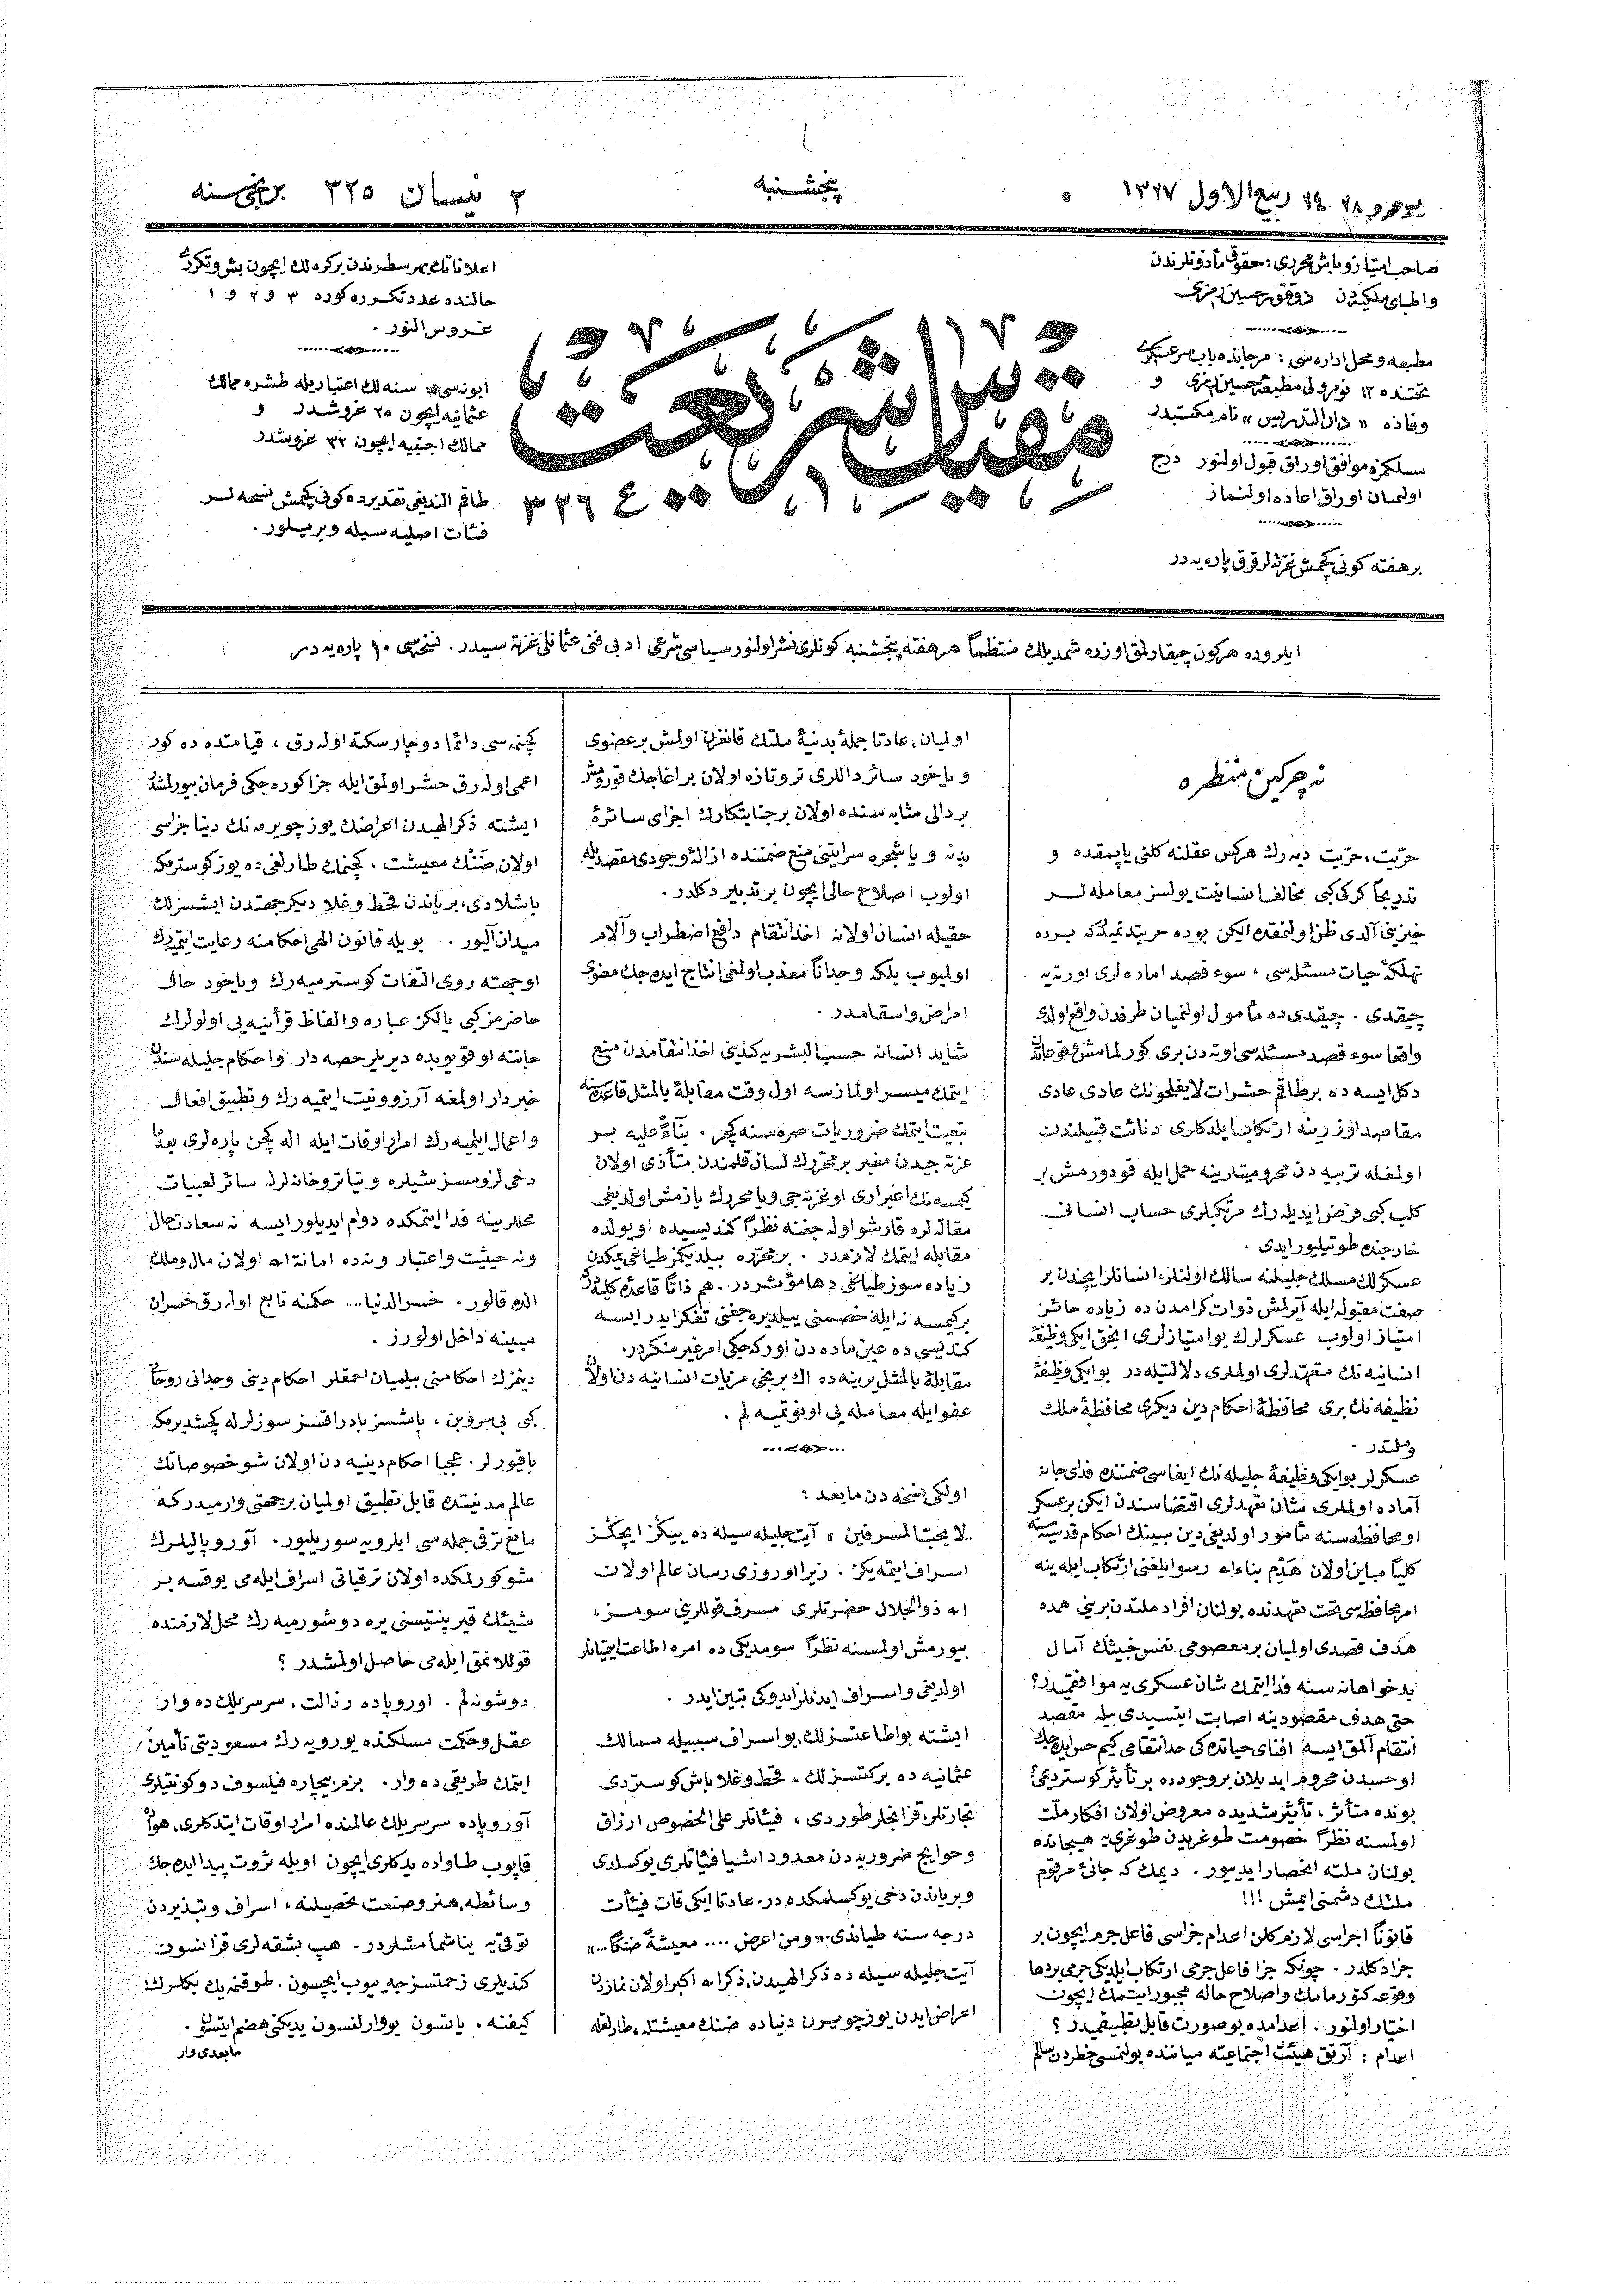 ٢٤ ربيع الاول ١٣٢٧
پنجشنبه
٢ نيسان ٣٢٥ برنجى سنه
صاحب امتياز و باش محررى : حقوق مأذونلرندن
و اطباى ملكيه دن دوقتور حسين رمزى
مطبعه و محل اداره سى : مرجانده باب سرعسكرى
تحتنده ١٢ نومرولى مطبعهٔ حسين رمزى و
وفاده « دار التدريس » نام مكتبدر
مسلكمزه موافق اوراق قبول اولنور درج
اولميان اوراق اعاده اولنماز
بر هفته كونى كچمش غزته لر قرق پاره يه در
مقياس شريعت
٣٢٦
اعلاناتك بهر سطرندن بر كره لك ايچون بش و تكررى
حالنده عدد تكرره كوره ٣ و ٢ و ١
غروش النور .
ابونه سى : سنه لك اعتباريله طشره ممالك
عثمانيه ايچون ٢٥ غروشدر و
ممالك اجنبيه ايچون ٣٢ غروشدر
طاقم النديغى تقديرده كونى كچمش نسخه لر
فئات اصليه سيله ويريلور .
ايلروده هر كون چيقارلمق اوزره شمديلك منتظماً هر هفته پنجشنبه كونلرى نشر اولنور سياسى شرعى ادبى فنى عثمانلى غزته سيدر . نسخه سى ١٠ پاره يه در
نه چركين منظره
حرّيت ، حرّيت ديه رك هركس عقلنه كلنى ياپمقده و
تدريجاً كركى كبى مخالف انسانيت يولسز معامله لر
خيزينى آلدى ظن اولنمقده ايكن بوده حريتدنميدكه برده
تهلكهٔ حيات مسئله سى ، سوء قصد اماره لرى اورته يه
چيقدى . چيقدى ده مأمول اولنميان طرفدن واقع اولدى
واقعا سوء قصد مسئله سى اوته دن برى كورلمامش وقوعاتدن
دكل ايسه ده بر طاقم حشرات لايفلحونك عادى عادى
مقاصد اوزرينه ارتكاب ايلدكلرى دنائت قبيلندن
اولمغله تربيه دن محروميتلرينه حمل ايله قودورمش بر
كلب كبى فرض ايديله رك مرتكبلرى حساب انسانى
خارجنده طوتيليور ايدى .
عسكرلك مسلك جليلنه سالك اولنلر ، انسانلر ايچندن بر
صفت مقبوله ايله آيرلمش ذوات كرامدن ده زياده حائز
امتياز اولوب عسكرلرك بو امتيازلرى انجق ايكى وظيفهٔ
انسانيه نك متعهدلرى اولملرى دلالتيله در بو ايكى وظيفهٔ
نظيفه نك برى محافظهٔ احكام دين ديكرى محافظهٔ ملك
وملتدر .
عسكرلر بو ايكى وظيفهٔ جليله نك ايفاسى ضمننده فداى جانه
آماده اولملرى شان تعهدلرى اقتضاسندن ايكن بر عسكر
او محافظه سنه مأمور اولديغى دين مبينك احكام قدسيه سنه
كلياً مباين اولان هَدْمِ بناءالله رسوايلغنى ارتكاب ايله ينه
امر محافظه سى تحت تعهدنده بولنان افراد ملتدن برينى همده
هدف قصدى اولميان بر معصومى نفس خبيثك آمال
بدخواهانه سنه فدا ايتمك شان عسكرى يه موافقميدر ؟
حتى هدف مقصودينه اصابت ايتسيدى بيله مقصد
انتقام آلمق ايسه افناى حياتده كى حد انتقامى كيم حس ايده جك
او حسدن محروم ايديلان بر وجودده بر تأثير كوستردىمى ؟
بونده متأثر ، تأثير شديده معروض اولان افكار ملت
اولمسنه نظراً خصومت طوغريدن طوغرى يه هيجانده
بولنان ملته انحصار ايدييور . ديمك كه جانئ مرقوم
ملتك دشمنى ايمش !!!
قانوناً اجراسى لازم كلن اعدام جزاسى فاعل جرم ايچون بر
جزا دكلدر . چونكه جزا فاعل جرمى ارتكاب ايلديكى جرمى بر دها
وقوعه كتورمامك و اصلاح حاله مجبور ايتمك ايچون
اختيار اولنور . اعدامده بو صورت قابل تطبيقميدر ؟
اعدام : آرتق هيئت اجتماعيه ميانندە بولنمسى خطردن سالم
اولميان ، عادتا جملهٔ بدنيهٔ ملتك قانغرن اولمش بر عضوى
و ياخود سائر داللرى تروتازه اولان بر اغاجك قورومش
بر دالى مثابه سنده اولان بر جنايتكارك اجزاى سائرهٔ
بدنه و يا شجره سرايتنى منع ضمننده ازالهٔ وجودى مقصديله
اولوب اصلاح حالى ايچون بر تدبير دكلدر .
حقيله انسان اولانه اخذ انتقام دافع اضطراب وآلام
اولميوب بلكه وجداناً معذب اولمغى انتاج ايده جك معنوى
امراض واسقامدر .
شايد انسانه حسب البشريه كندينى اخذ انتقامدن منع
ايتمك ميسر اولمازسه اول وقت مقابلهٔ بالمثل قاعده سنه
تبعيت ايتمك ضروريات صره سنه كچر . بناءً عليه بر
غزته جيدن مغبر بر محررك لسان قلمندن متأذى اولان
كيمسه نك اغبرارى او غزته جى و يا محررك يازمش اولديغى
مقاله لره قارشو اوله جغنه نظراً كنديسيده او يولده
مقابله ايتمك لازمدر . بر محرره بيلديكمز طياغى يمكدن
زياده سوز طياغى دها مؤثردر . هم ذاتاً قاعدهٔ كليه در كه
بر كيمسه نه ايله خصمنى ييلديره جغنى تفكر ايدر ايسه
كنديسى ده عين ماده دن اوركه جكى امر غير منكردر .
مقابلهٔ بالمثل يرينه ده اك برنجى مزيات انسانيه دن اولان
عفو ايله معامله يى اونوتميه لم .
اولكى نسخه دن مابعد :
.. لايحب المسرفين » آيت جليله سيله ده ييكز ايچكز
اسراف ايتمه يكز . زيرا و روزى رسان عالم اولان
الله ذوالجلال حضرتلرى مسرف قوللرينى سومز ،
بيورمش اولمسنه نظراً سومديكى ده امره اطاعت ايتميانلر
اولديغى و اسراف ايدنلر ايدوكى تبين ايدر .
ايشته بو اطاعتسزلك ، بو اسراف سببيله ممالك
عثمانيه ده بركتسزلك ، قحط و غلا باش كوستردى
تجارتلر ، قزانجلر طوردى ، فيئاتلر على الخصوص ارزاق
و حوايج ضروريه دن معدود اشيا فيئاتلرى يوكسلدى
و بر ياندن دخى يوكسلمكده در . عادتا ايكى قات فيئات
درجه سنه طياندى . « ومن اعرض .... معيشة ضنكا... »
آيت جليله سيله ده ذكر الهيدن ، ذكرالله اكبر اولان نمازدن
اعراض ايدن يوز چويرن دنياده ضنك معيشتله ، طارلقله
كچنمه سى دائما دوچار سكته اوله رق ، قيامتده ده كور
اعمى اوله رق حشر اولمق ايله جزا كوره جكى فرمان بيورلمشدر
ايشته ذكر الهيدن اعراضك يوز چويرمه نك دنيا جزاسى
اولان ضَنْك معيشت ، كچنمك طارلغى ده يوز كوسترمكه
باشلادى ، بر ياندن قحط و غلا ديكر جهتدن ايشسزلك
ميدان آليور .. بويله قانون الهى احكامنه رعايت ايتميه رك
او جهته روى التفات كوسترميه رك و ياخود حال
حاضرمز كبى يالكز عباره و الفاظ قرآنيه يى اولولرك
جاننه اوقويوبده ديريلر حصه دار و احكام جليله سندن
خبردار اولمغه آرزو و نيت ايتميه رك و تطبيق افعال
و اعمال ايلميه رك امرار اوقات ايله اله كچن پاره لرى بعدما
دخى لزومسز شيلره و تياتروخانه لرله سائر لعبيات
محللرينه فدا ايتمكده دوام ايديلور ايسه نه سعادتحال
ونه حيثيت و اعتبار و نه ده امانة الله اولان مال و ملك
الده قالور . خسر الدنيا .... حكمنه تابع اوله رق خسران
مبينه داخل اولورز .
دينمزك احكامنى بيلميان احمقلر احكام دينى وجدانى روحانى
كبى بى سروبن ، باشسز بادراقسز سوزلرله كچشديرمكه
باقيورلر . عجبا احكام دينيه دن اولان شو خصوصاتك
عالم مدنيتده قابل تطبيق اولميان بر جهتى وارميدر كه
مانع ترقى جمله سى ايلرويه سوريليور . آوروپاليلرك
شو كورلمكده اولان ترقياتى اسراف ايله مى يوقسه بر
شيئك قيرينتيسنى يره دوشورميه رك محل لازمنده
قوللانمق ايله مى حاصل اولمشدر ؟
دوشونه لم . اوروپاده رذالت ، سرسريلك ده وار
عقل و حكمت مسلكنده يورويه رك مسعوديتى تأمين
ايتمك طريقى ده وار . بزم بيچاره فيلسوف دوكونتيلرى
آوروپاده سرسريلك عالمنده امرار اوقات ايتدكلرى ، هواده
قاپوب طاواده يدكلرى ايچون اويله ثروت پيدا ايده جك
وسائطه ، هنر و صنعت تحصيلنه ، اسراف و تبذيردن
توقى يه يناشمامشلردر . هپ بشقه لرى قزانسون
كنديلرى زحمتسزجه ييوب ايچسون . طوقنمه يك بكلرك
كيفنه . ياتسون يووارلنسون يديكنى هضم ايتسون .
مابعدى وار